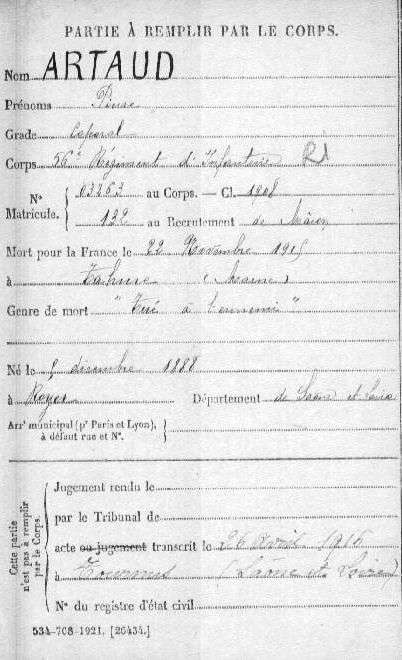 PARTIE À REMPLIR PAR LE CORPS.
Nom ARTAUD
Prénoms Pierre
Grade Caporal
Corps 56e Régiment d'Infanterie RI
N° 03263 au Corps. — Cl. 1908
Matricule. 122 au Recrutement de Mâcon
Mort pour la France le 22 Novembre 1915
à Tahure (Marne)
Genre de mort "Tué à l'ennemi"
Né le 5 décembre 1888
à Royer Département de Saône et Loire
Arr^t municipal (p^r Paris et Lyon),
à défaut rue et N°.
Cette partie
n'est pas à remplir
par le Corps.
Jugement rendu le
par le Tribunal de
acte ou jugement transcrit le 26 Avril 1916
à Tournus (Saone et Loire)
N° du registre d'état civil
534-708-1921. [26434.]